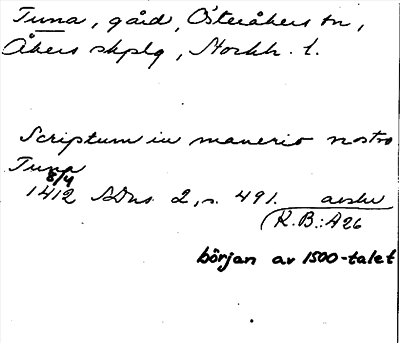 Tuna, gård, Österåkers sn,
Åkers skplg, Stockh. l.
Scriptum in manerio nostro
Tuna
8/4
1412 SDns 2, s. 491. avskr
(K.B.: A26
början av 1500-talet